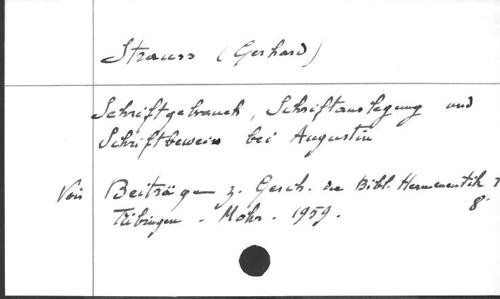 Strauss (Gerhard)
Schriftgebrauch, Schriftauslegung und
Schriftbeweis bei Augustin
Voir Beiträgen z. Gesch. der Bibl. Hermeneutik 1
8°
Tübingen - Mohr - 1959.